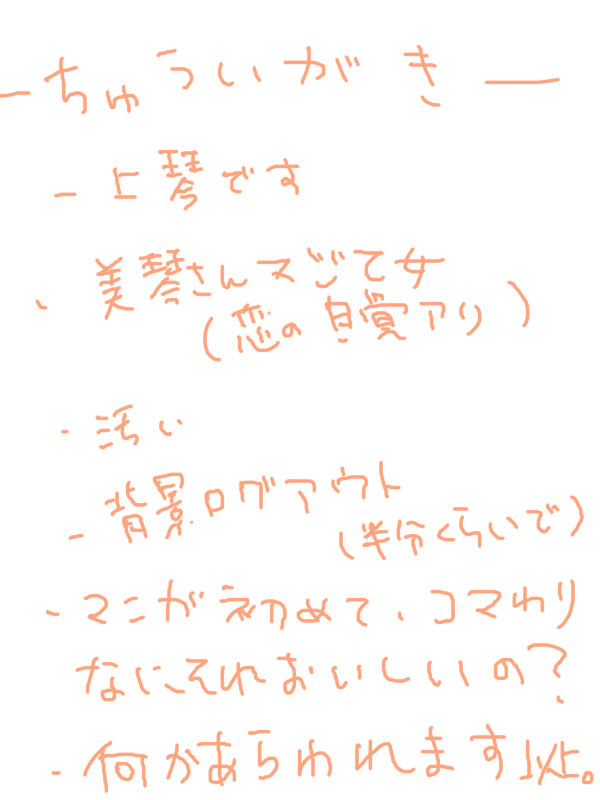 ーちゅういがきー
- 上琴です
、美琴さんマジ乙女
(恋の自覚アリ)
・汚い
- 背景ログアウト
(半分くらいで)
- マンガ初めて、コマわり
なにそれおいしいの?
- 何かあらわれます 以上。